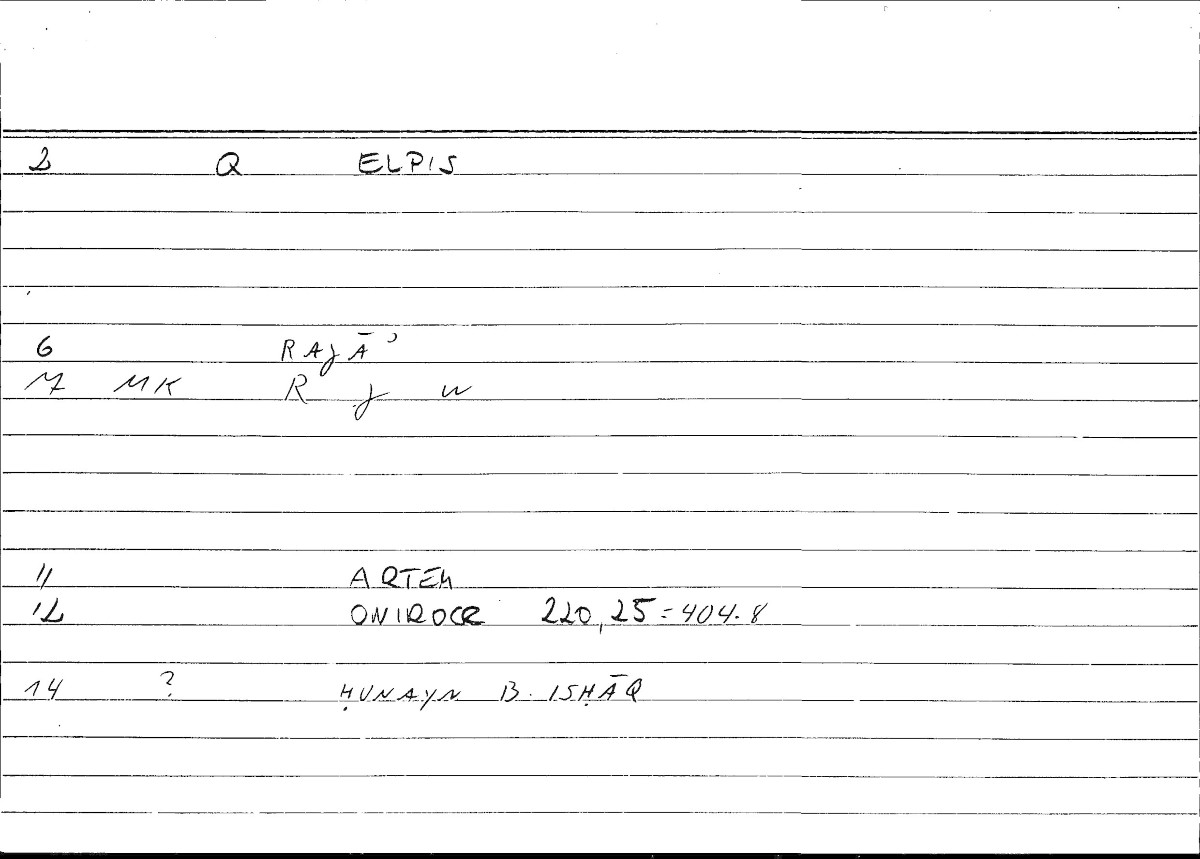 2 Q ELPIS
6 RAJĀʾ
7 MK R J W
11 ARTEM
12 ONIROCR 220,25=404.8
14 ? ḤUNAYN B. ISḤĀQ